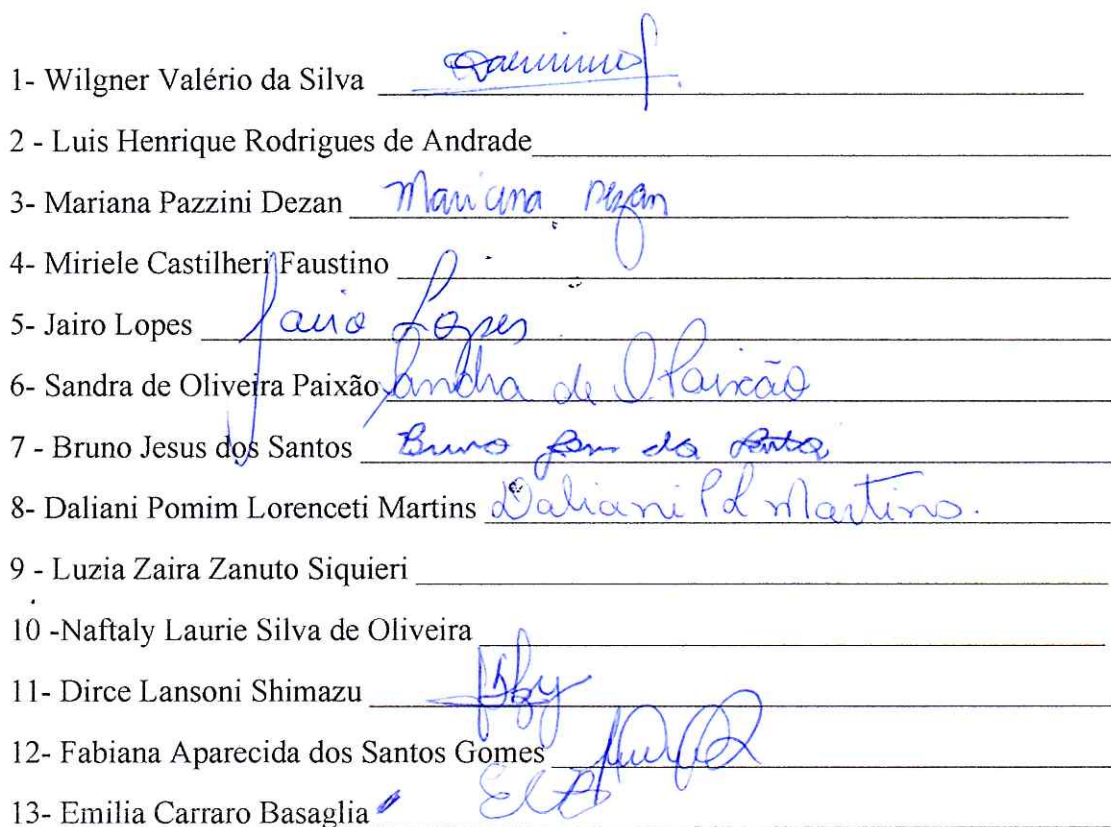 1- Wilgner Valério da Silva
2 - Luis Henrique Rodrigues de Andrade
3- Mariana Pazzini Dezan Mariana Dezan
4- Miriele Castilheri Faustino
5- Jairo Lopes Jairo Lopes
6- Sandra de Oliveira Paixão Sandra de O. Paixão
7 - Bruno Jesus dos Santos Bruno
8- Daliani Pomim Lorenceti Martins Daliani P L Martins.
9 - Luzia Zaira Zanuto Siquieri
10 -Naftaly Laurie Silva de Oliveira
11- Dirce Lansoni Shimazu
12- Fabiana Aparecida dos Santos Gomes
13- Emilia Carraro Basaglia